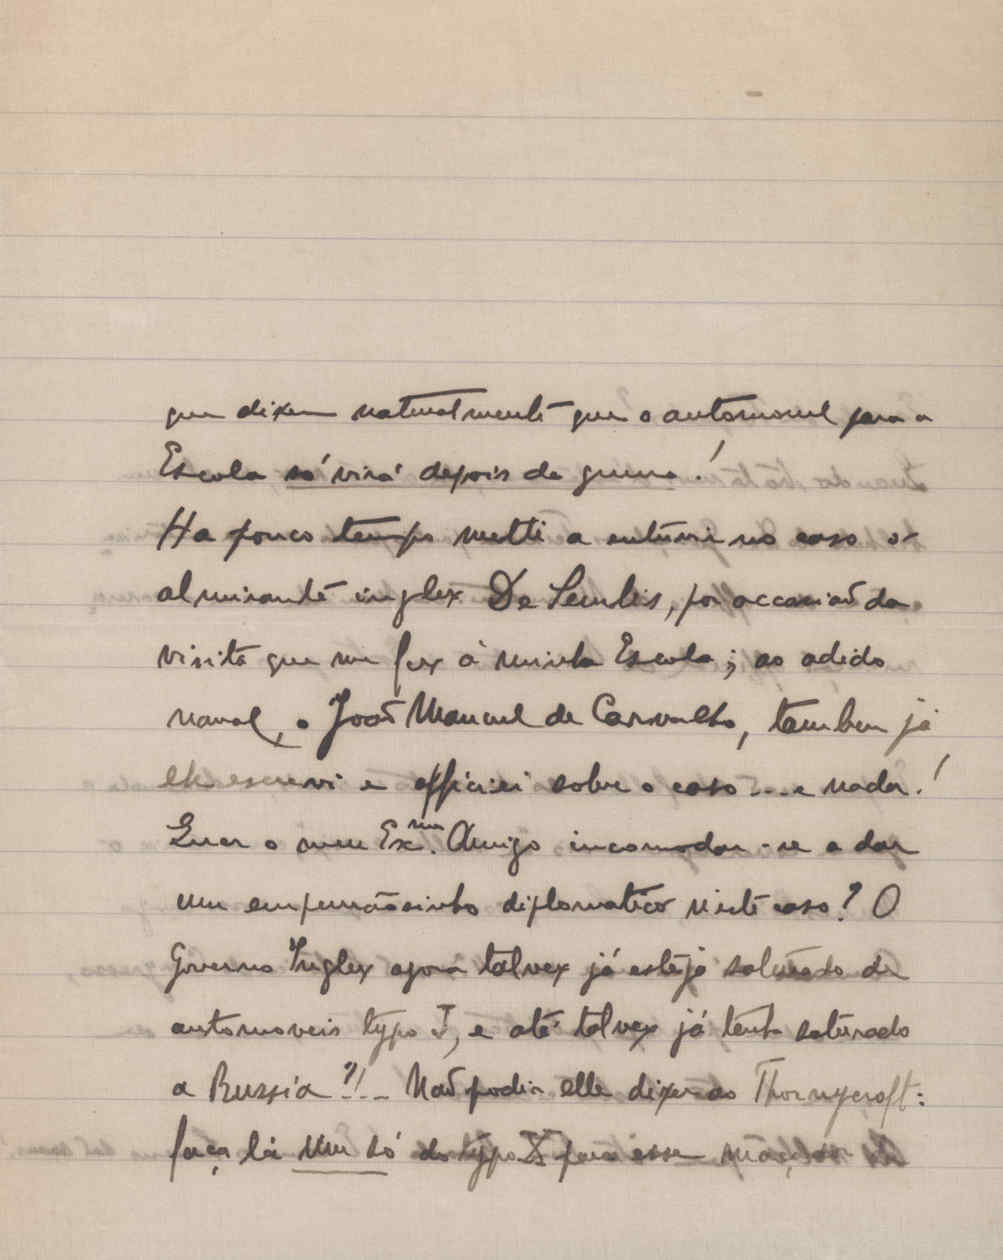 que dizem naturalmente que o automovel para a
Escola só virá depois da guerra!
Ha pouco tempo metti a entervir no caso o
almirante inglez De Semlis, por occasião da
visita que me fez á minha Escola; ao adido
naval, o João Manuel de Carvalho, tambem já
lhe escrevi e officiei sobre o caso... e nada!
Quer o meu Exmo. Amigo incomodar-se a dar
um empurrãosinho diplomatico neste caso? O
Governo Inglez agora talvez já esteja saturado de
automoveis typo J, e até talvez já tenha saturado
a Russia?!... Não podia elle dizer ao Thornycroft:
faça lá um só do typo X para esse